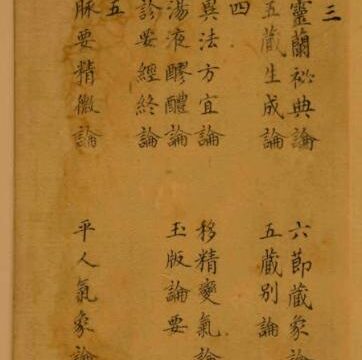 三
靈蘭祕典論 六節藏象論
五藏生成論 五藏別論
四
異法方宜論 移精變氣論
湯液醪醴論 玉版論要
診要經終論
五
脉要精微論 平人氣象論